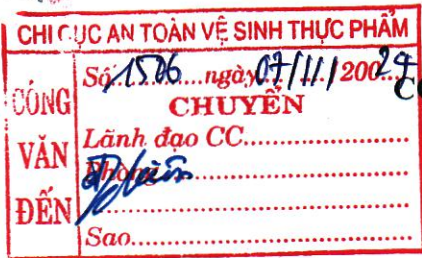 CHI CỤC AN TOÀN VỆ SINH THỰC PHẨM
CÔNG VĂN ĐẾN
Số 1506 ngày 07/11/2002
CHUYỂN
Lãnh đạo CC
Phòng
Sao